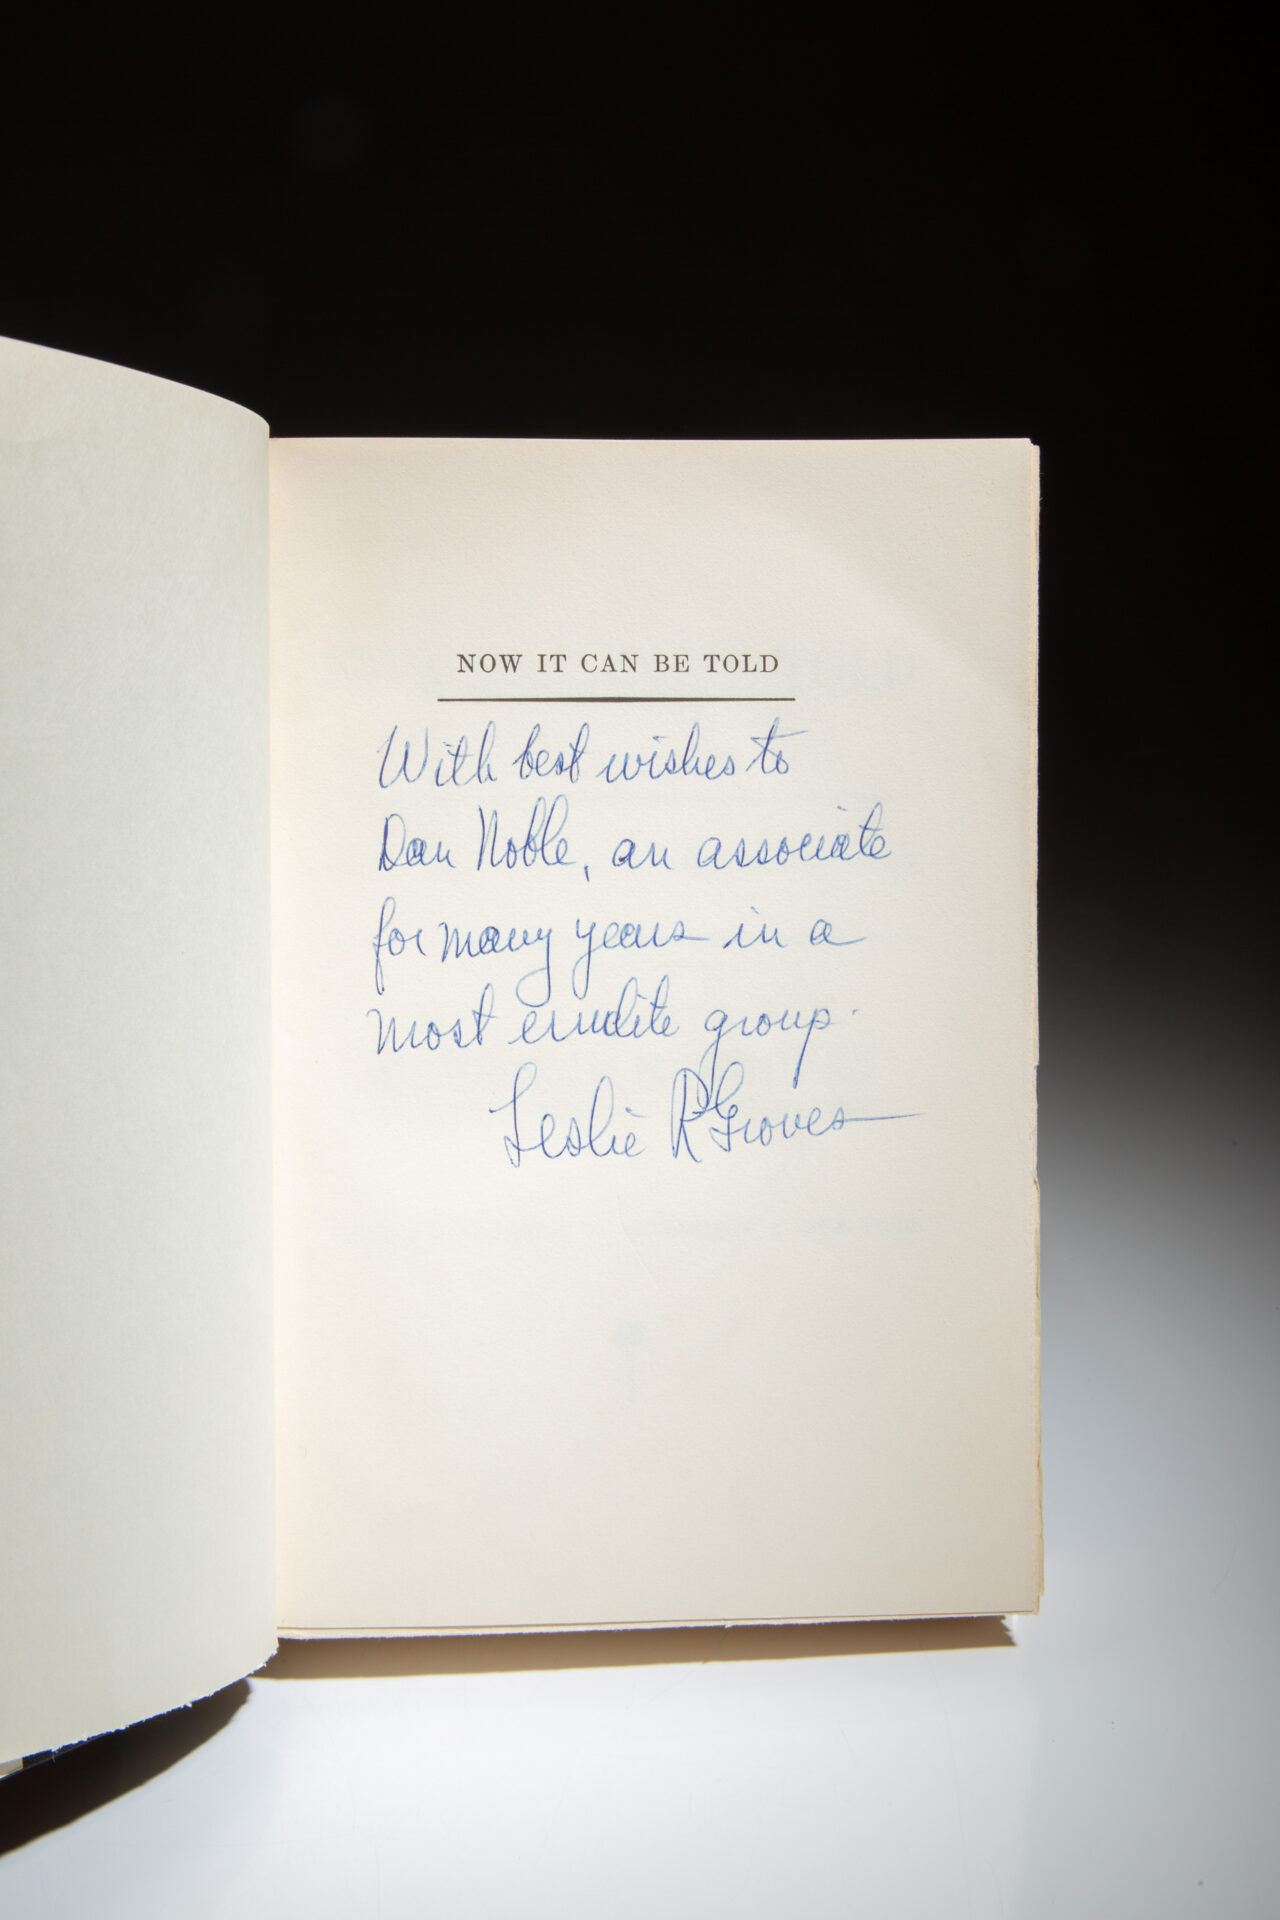 NOW IT CAN BE TOLD
With best wishes to
Dan Noble, an associate
for many years in a
most erudite group.
Leslie R Groves